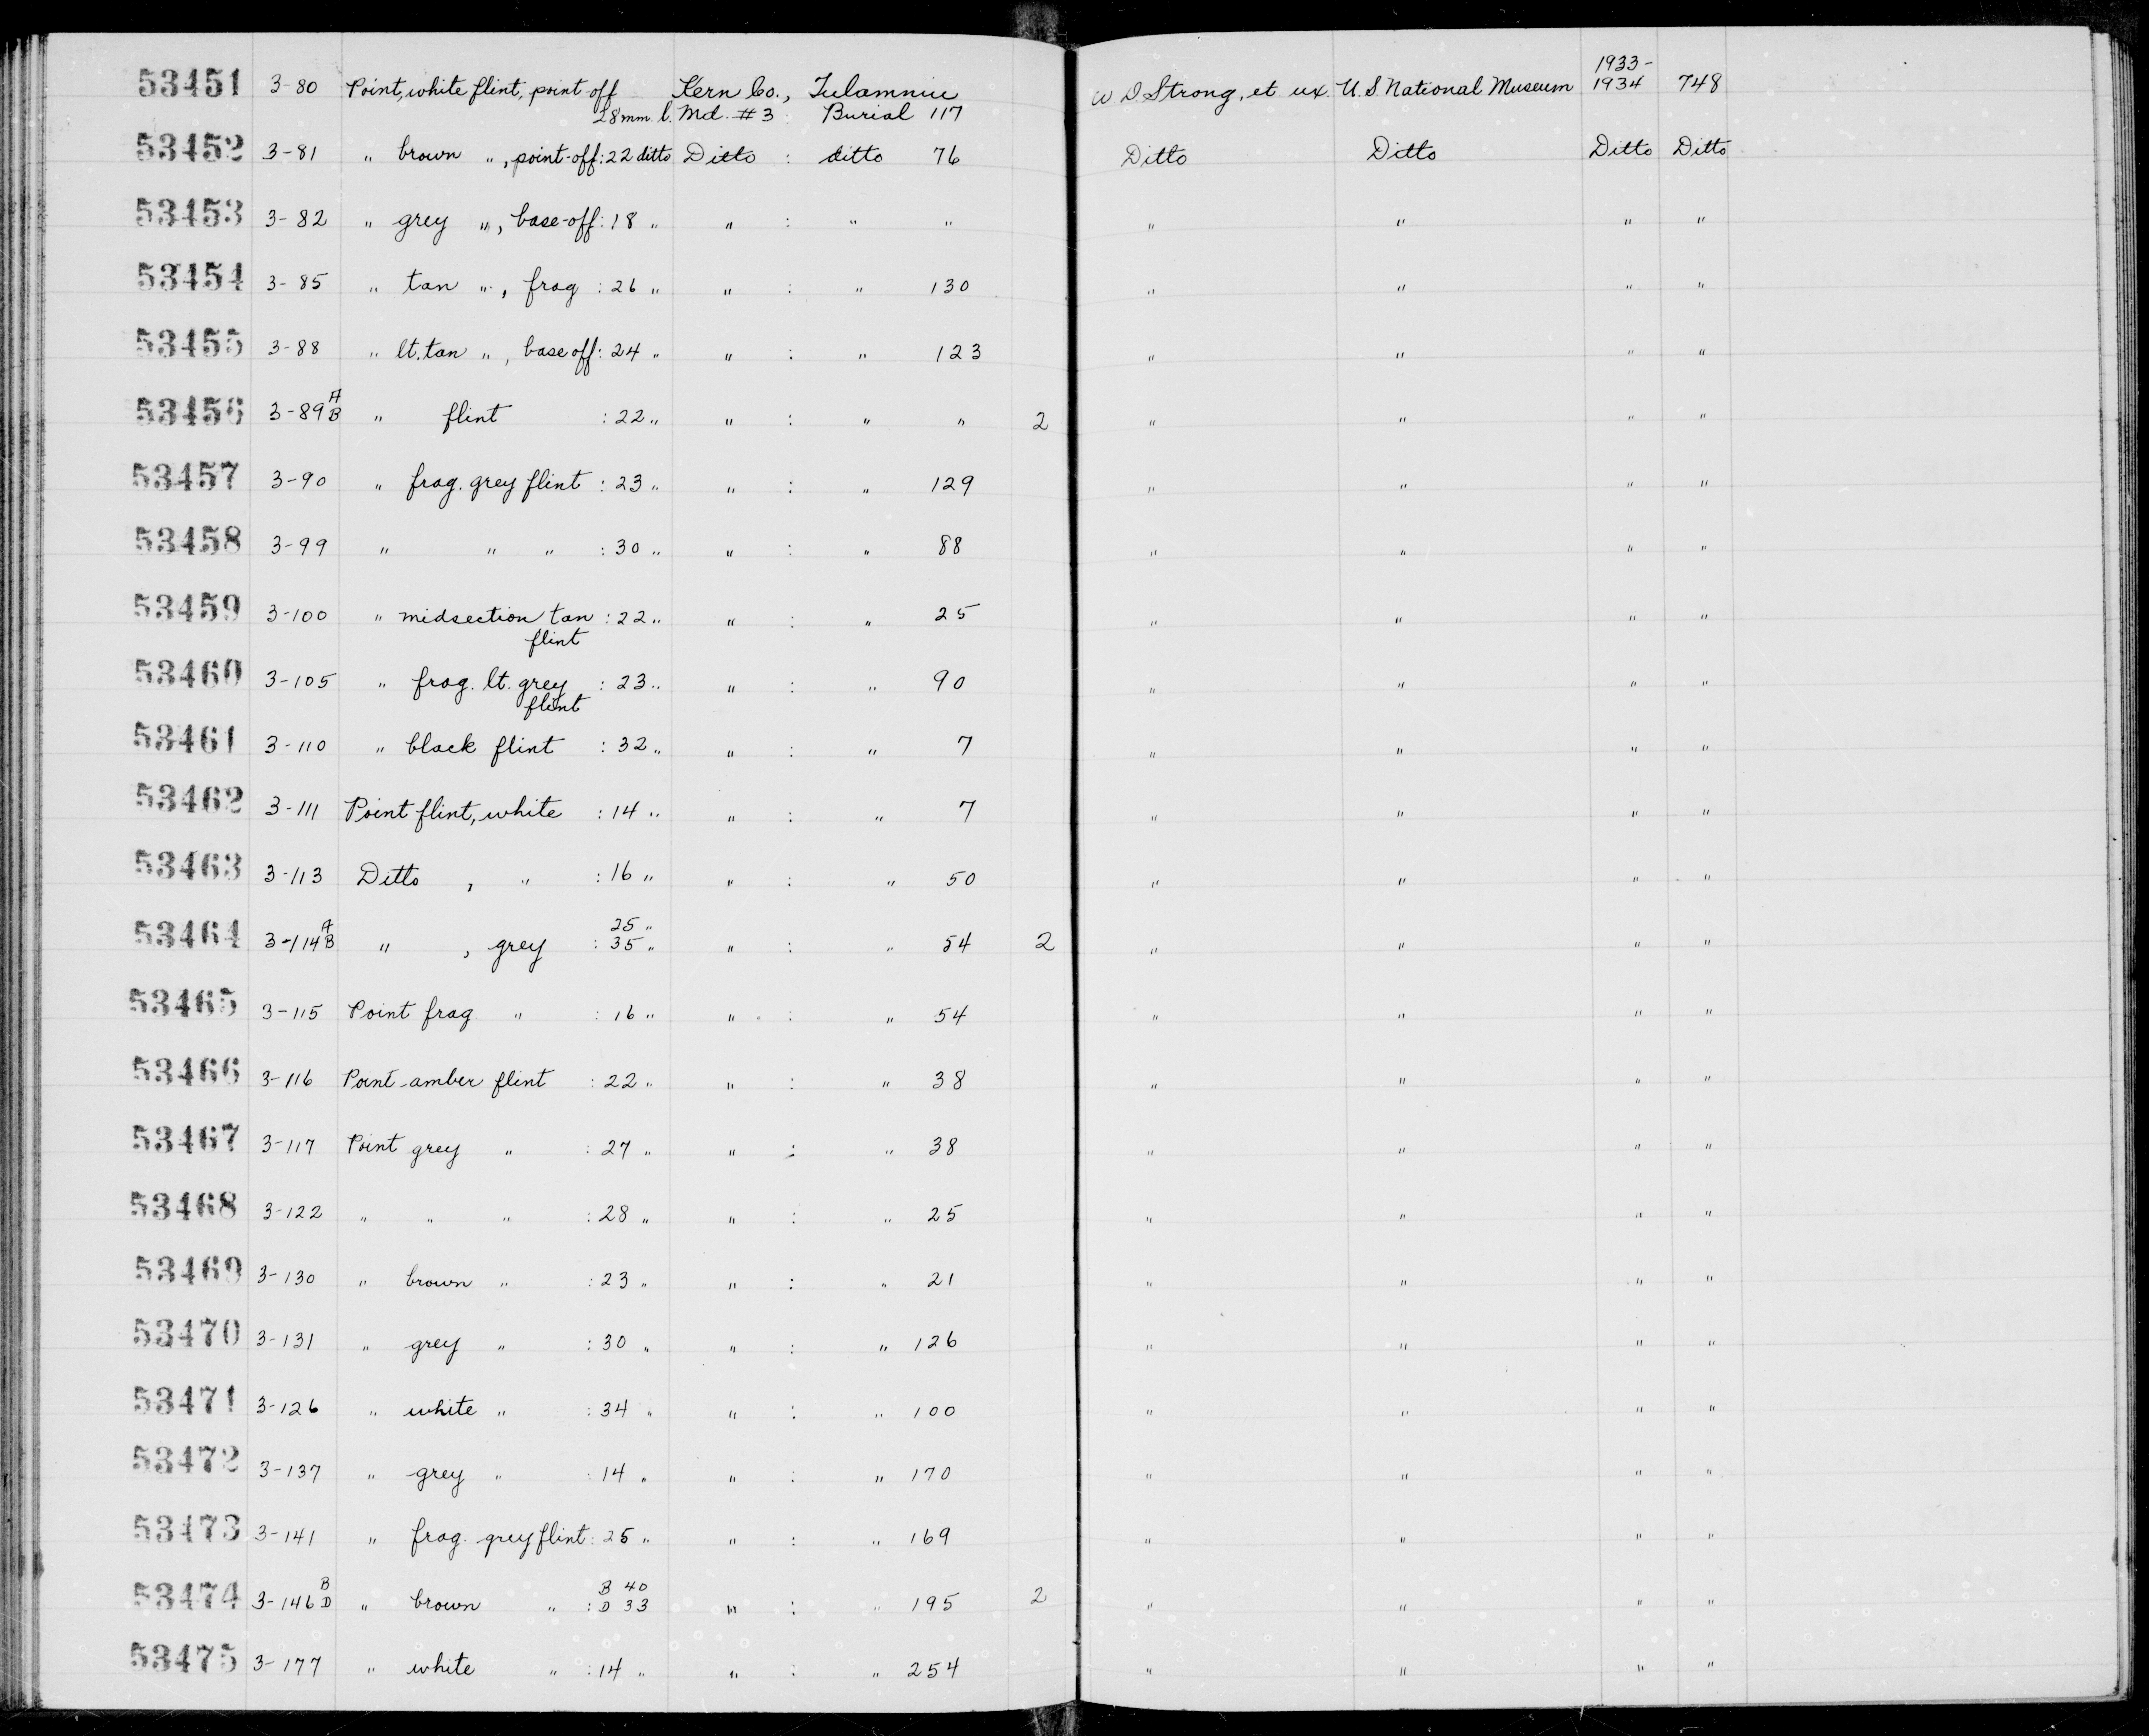 53451 3-80 Point, white flint, point-off Kern Co., Tulamniu W D Strong, et ux. U.S National Museum 1933-1934 748
28 mm. l. Md. #3 : Burial 117
53452 3-81 " brown ", point-off : 22 ditto Ditto : ditto 76 Ditto Ditto Ditto Ditto
53453 3-82 " grey ", base-off : 18 " " : " " " " " "
53454 3-85 " tan ", frag : 26 " " : " 130 " " " "
53455 3-88 " lt. tan ", base off : 24 " " : " 123 " " " "
53456 3-89 A B " flint : 22 " " : " " 2 " " " "
53457 3-90 " frag. grey flint : 23 " " : " 129 " " " "
53458 3-99 " " " : 30 " " : " 88 " " " "
53459 3-100 " midsection tan : 22 " " : " 25 " " " "
flint
53460 3-105 " frag. lt. grey : 23 " " : " 90 " " " "
flint
53461 3-110 " black flint : 32 " " : " 7 " " " "
53462 3-111 Point flint, white : 14 " " : " 7 " " " "
53463 3-113 Ditto , " : 16 " " : " 50 " " " "
53464 3-114 A B " , grey : 25 " 35 " " : " 54 2 " " " "
53465 3-115 Point frag " : 16 " " : " 54 " " " "
53466 3-116 Point-amber flint : 22 " " : " 38 " " " "
53467 3-117 Point grey " : 27 " " : " 38 " " " "
53468 3-122 " " " : 28 " " : " 25 " " " "
53469 3-130 " brown " : 23 " " : " 21 " " " "
53470 3-131 " grey " : 30 " " : " 126 " " " "
53471 3-126 " white " : 34 " " : " 100 " " " "
53472 3-137 " grey " : 14 " " : " 170 " " " "
53473 3-141 " frag. grey flint : 25 " " : " 169 " " " "
53474 3-146 B D " brown " : B 40 D 33 " : " 195 2 " " " "
53475 3-177 " white " : 14 " " : " 254 " " " "